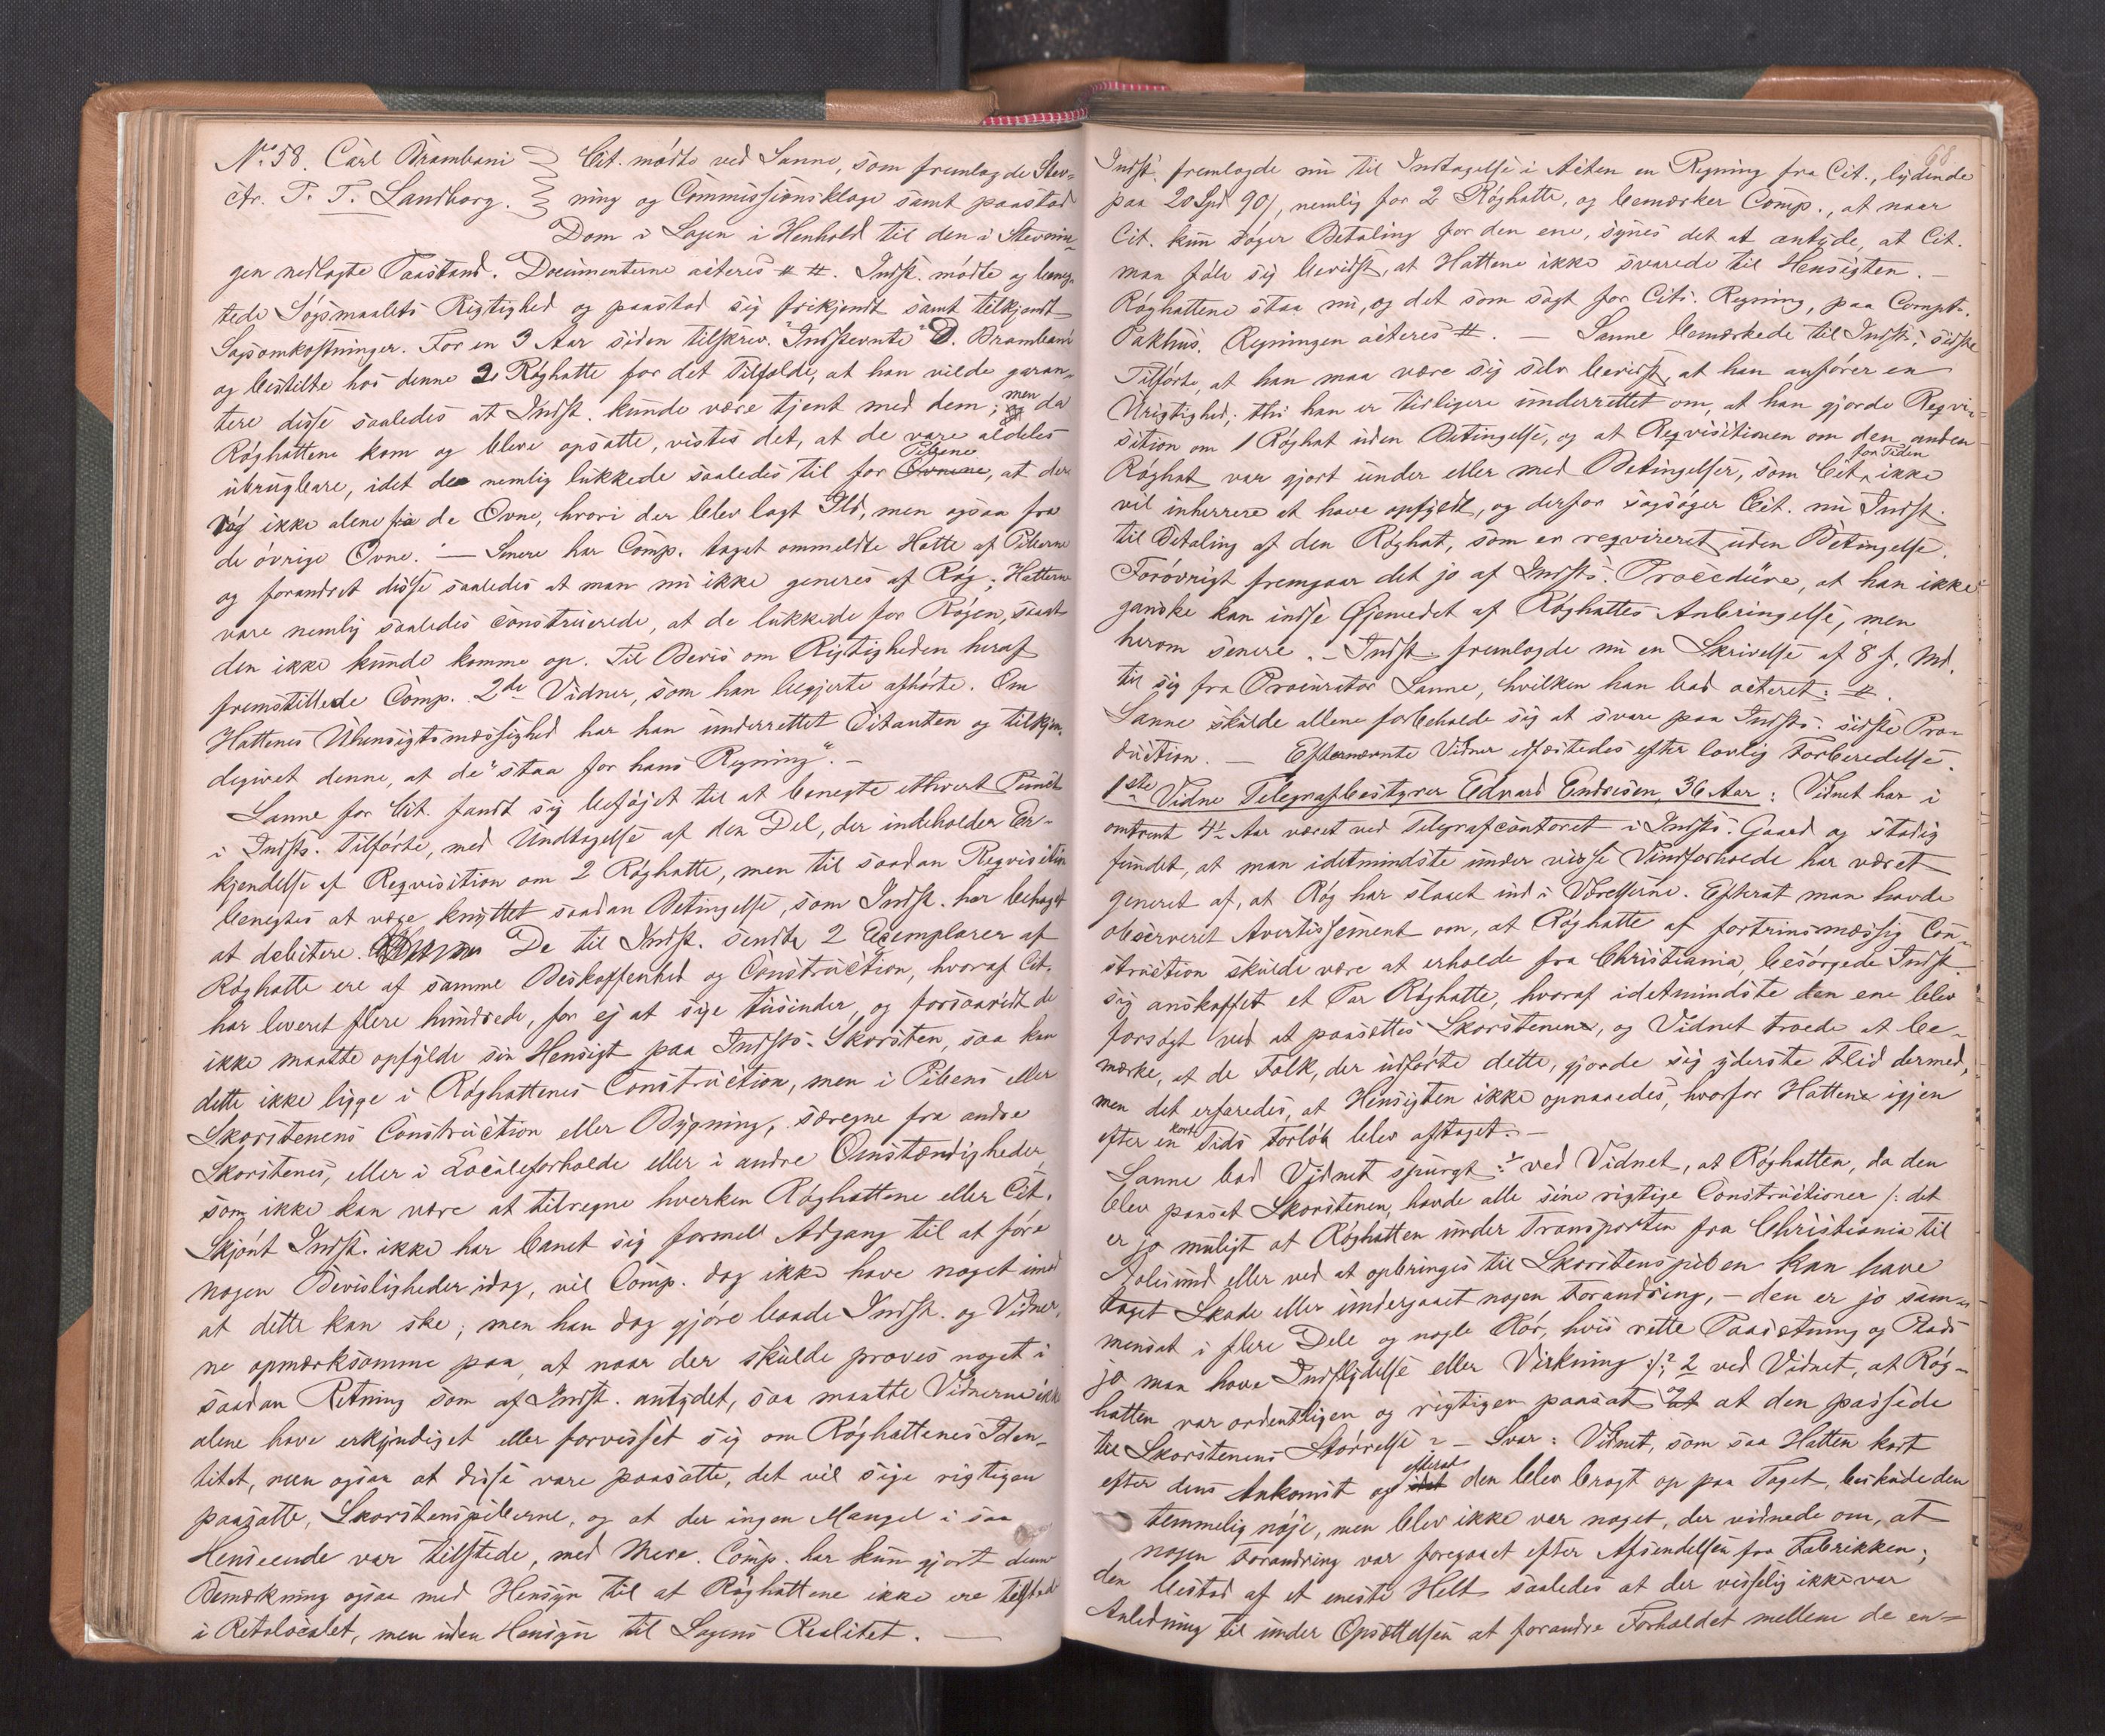 No 58. Carl Brambani
ctr. T. T. Landborg.
Cit. mødte ved Sanne, som fremlagde Stev-
ning og Commissionsklage samt paastod
Dom i Sagen i Henhold til den i Stevnin-
gen nedlagte Paastand. Documenterne acteres # #. Indst. mødte og beneg-
tede Søgsmaalets Rigtighed og paastod sig frikjendt samt tilkjendt
Sagsomkostninger. For en 3 Aar siden tilskrev Indstevnte C. Brambani
og bestilte hos denne 2 Røghatte for det Tilfælde, at han vilde garan-
tere disse saaledes at Indst. kunde være tjent med dem; men da
Røghattene kom og bleve opsatte, vistes det, at de vare aldeles
ubrugbare, idet de nemlig lukkede saaledes til for Piberne, at der
røg ikke alene fra de Ovne, hvori der blev lagt Ild, men ogsaa fra
de øvrige Ovne. — Senere har Comp. taget ommeldte Hatte af Piberne
og forandret disse saaledes at man nu ikke generes af Røg; Hattene
vare nemlig saaledes construerede, at de lukkede for Røgen, saa at
den ikke kunde komme op. Til Bevis om Rigtigheden heraf
fremstillede Comp. 2de Vidner, som han begjerte afhørte. Om
Hattenes Uhensigtsmæssighed har han underrettet Citanten og tilkjen-
degivet denne, at de "staa for hans Regning". —
Sanne for Cit. fandt sig beføjet til at benegte ethvert Punct
i Indsts. Tilførte, med Undtagelse af den Del, der indeholder Er-
kjendelse af Reqvisition om 2 Røghatte, men til saadan Reqvisition
benegtes at være knyttet saadan Betingelse, som Indst. har behaget
at debitere. De til Indst. sendte 2 Exemplarer af
Røghatte ere af samme Beskaffenhed og Construction, hvoraf Cit.
har leveret flere hundrede, for ej at sige tusinder, og forsaavidt de
ikke maatte opfylde sin Hensigt paa Indsts. Skorsten, saa kan
dette ikke ligge i Røghattenes Construction, men i Pibens eller
Skorstenens Construction eller Bygning, særegne fra andre
Skorstenes, eller i Localeforholde eller i andre Omstændigheder,
som ikke kan være at tilregne hverken Røghattene eller Cit.
Skjønt Indst. ikke har banet sig formel Adgang til at føre
nogen Bevisligheder idag, vil Comp. dog ikke have noget imod
at dette kan ske; men han dog gjøre baade Indst. og Vidner-
ne opmærksomme paa, at naar der skulde prøves noget i
saadan Retning som af Indst. antydet, saa maatte Vidnerne ikke
alene have erkyndiget eller forvisset sig om Røghattenes Iden-
titet, men ogsaa at disse vare paasatte, det vil sige rigtigen
paasatte, Skorstenspiberne, og at der ingen Mangel i saa
Henseende var tilstede, med Mere. Comp. har kun gjort denne
Bemærkning ogsaa med Hensyn til at Røghattene ikke ere tilstede
i Retslocalet, men uden Hensyn til Sagens Realitet. —
68
Indst. fremlagde nu til Indtagelse i Acten en Regning fra Cit., lydende
paa 20 Spd 90 s, nemlig for 2 Røghatte, og bemærker Comp., at naar
Cit. kun søger Betaling for den ene, synes det at antyde, at Cit.
maa føle sig bevidst, at Hattene ikke svarede til Hensigten. —
Røghattene staa nu, og det som sagt for Cits. Regning, paa Compts.
Pakhus. Regningen acteres #. — Sanne bemærkede til Indsts. sidste
Tilførte, at han maa være sig selv bevidst, at han anfører en
Urigtighed; thi han er tidligere underrettet om, at han gjorde Reqvi-
sition om 1 Røghat uden Betingelse, og at Reqvisitionen om den anden
Røghat var gjort under eller med Betingelser, som Cit. for Tiden ikke
vil inherrere at have opfyldt, og derfor sagsøger Cit. nu Indst.
til Betaling af den Røghat, som er reqvireret uden Betingelse.
Forøvrigt fremgaar det jo af Indsts. Procedüre, at han ikke
ganske kan indse Øjemedet af Røghattes Anbringelse, men
herom senere. — Indst. fremlagde nu en Skrivelse af 8 f. Md.
til sig fra Procurator Sanne, hvilken han bad acteret: #.
Sanne skulde allene forbeholde sig at svare paa Indsts. sidste Pro-
duction. — Efternævnte Vidner edfæstedes efter lovlig Forberedelse.
1ste Vidne Telegrafbestyrer Edvard Endresen, 36 Aar: Vidnet har i
omtrent 4½ Aar været ved Telegrafcontoret i Indsts. Gaard og stadig
fundet, at man idetmindste under visse Vindforholde har været
generet af, at Røg har slaaet ind i Værelserne. Efterat man havde
observeret Avertissement om, at Røghatte af fortrinsmæssig Con-
struction skulde være at erholde fra Christiania, besørgede Indst.
sig anskaffet et Par Røghatte, hvoraf idetmindste den ene blev
forsøgt ved at paasættes Skorstenene, og Vidnet troede at be-
mærke, at de Folk, der udførte dette, gjorde sig yderste Flid dermed,
men det erfaredes, at Hensigten ikke opnaaedes, hvorfor Hattene igjen
efter en kort Tids Forløb blev aftaget. —
Sanne bad Vidnet spurgt: 1 ved Vidnet, at Røghatten, da den
blev paasat Skorstenen, havde alle sine rigtige Constructioner /: det
er jo muligt at Røghatten under Transporten fra Christiania til
Aalesund eller ved at opbringes til Skorstenspiben kan have
taget Skade eller undergaaet nogen Forandring, — den er jo sam-
mensat i flere Dele og nogle Rør, hvis rette Paasætning og Plads
jo maa have Indflydelse eller Virkning :/? 2 ved Vidnet, at Røg-
hatten var ordentligen og rigtigen paasat og at den passede
til Skorstenens Størrelse? — Svar: Vidnet, som saa Hatten kort
efter dens Ankomst og efterat den blev bragt op paa Taget, beskuede den
temmelig nøje, men blev ikke var noget, der vidnede om, at
nogen Forandring var foregaaet efter Afsendelsen fra Fabrikken;
den bestod af et eneste Helt saaledes at der visselig ikke var
Anledning til under Opsættelsen at forandre Forholdet mellem de en-